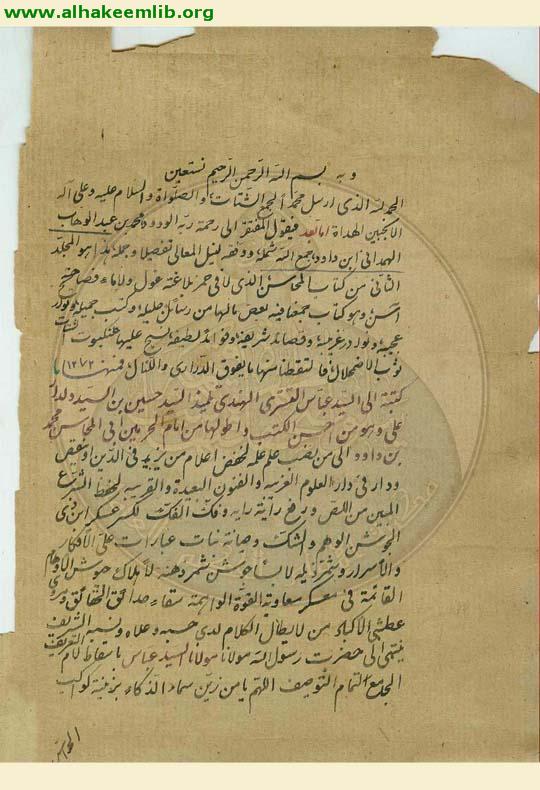 www.alhakeemlib.org
وبه بسم الله الرحمن الرحيم نستعين
الحمد لله الذي ارسل محمدا لجمع الشتات والصلواة والسلام عليه وعلى آله
الانجبين الهداة اما بعد فيقول المفتقر الى رحمة ربه الودود محمد بن عبد الوهاب
الهمداني ابن داود جمع الله شمله ووفقه لنيل المعالي تفصيلا وجملة هذا هو المجلد
الثاني من كتاب المحاسن الذي لا في خمر بلاغته غول ولا ماء فصاحته
آسن وهو كتاب جمعنا فيه بعض مالها من رسائل جليلة وكتب جميلة ونوادر
عجيبة ودرر غريبة وقصائد شريفة وفوائد لطيفة نسج عليها عنكبوت الشتات
ثوب الاضمحلال فالتقطنا منها ما يفوق الدراري واللئال فمنها ١٢٧٢ ما
كتبته الى السيد عباس التستري الهندي تلميذ السيد حسين بن السيد دلدار
علي وهو من احسن الكتب واطولها من امام الحرمين ابي المحاسن محمد
بن داود الى من نصب علم علمه لخفض اعلام من يزيد في الدين او ينقص
ودار في دار العلوم الغريبة والفنون البعيدة والقريبة لحفظ الشرع
المبين من اللص ورفع راية رايه وفك الفك لكسر عسكر ابن ذي
الجوشن الوهم والشك وصيانة بنات عبارات على الافكار
والاسرار وشمر ذيله لابسا جوشن شمر ذهنه لاهلاك جيوش الاوهام
القائمة في معسكر معاوية القوة الواهمة سقاء حدائق الحقائق ومروي
عطشى الاكباد من لا يطال الكلام لدى حسبه وعلاه ونسبه الشريف
ينتمي الى حضرت رسول الله مولانا مولانا السيد عباس باسقاط لام التعريف
المجد مع التمام التوصيف اللهم يا من زين سماء الذكاء بزينة كواكب